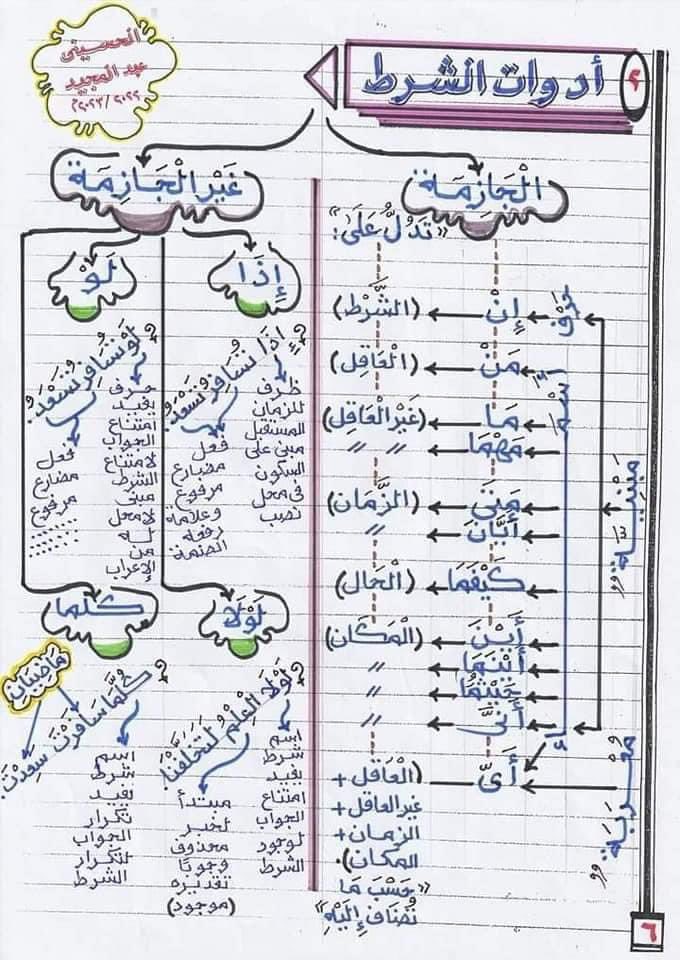 ٢
أدوات الشرط
الحسيني
عبد المجيد
٢٠٢٢/٢٠٢٣م
الْجَازِمَة
«تَدُلُّ عَلَى:»
حَرْف
إِنْ (الشَّرْط)
اسْم
مَنْ (الْعَاقِل)
مَا (غَيْرالْعَاقِل)
مَهْمَا 〃 〃
مَبْنِيَّة
مَتَى (الزَّمَان)
أَيَّانَ 〃
كَيْفَمَا (الْحَال)
أَيْنَ (الْمَكَان)
أَيْنَمَا 〃
حَيْثُمَا 〃
أَنَّى 〃
مُعْرَبَة
أَيّ (الْعَاقِل +
غير العاقل +
الزمان +
المكان).
«حَسْبَ مَا
تُضَاف إِلَيْهِ»
غَيْر الْجَازِمَة
إِذَا
إِذَا تُسَافِرُ تَسْعَدُ.
ظرف
للزمان
المستقبل
مبنى على
السكون
فى محل
نصب
فعل
مضارع
مرفوع
وعلامة
رفعه
الضمة
لَوْ
لَوْ تُسَافِرُ تَسْعَدُ.
حرف
يفيد
امتناع
الجواب
لامتناع
الشرط
مبنى
لا محل
له
من
الإعراب
فعل
مضارع
مرفوع
لَوْلَا
لَوْلَا الْعِلْمُ لَتَخَلَّفْنَا.
اسم
شرط
يفيد
امتناع
الجواب
لوجود
الشرط
مبتدأ
لخبر
محذوف
وجوبًا
تقديره
(موجود)
كلما
كُلَّمَا سَافَرْتَ سَعِدْتَ.
ماضيان
اسم
شرط
يفيد
تكرار
الجواب
لتكرار
الشرط
٦